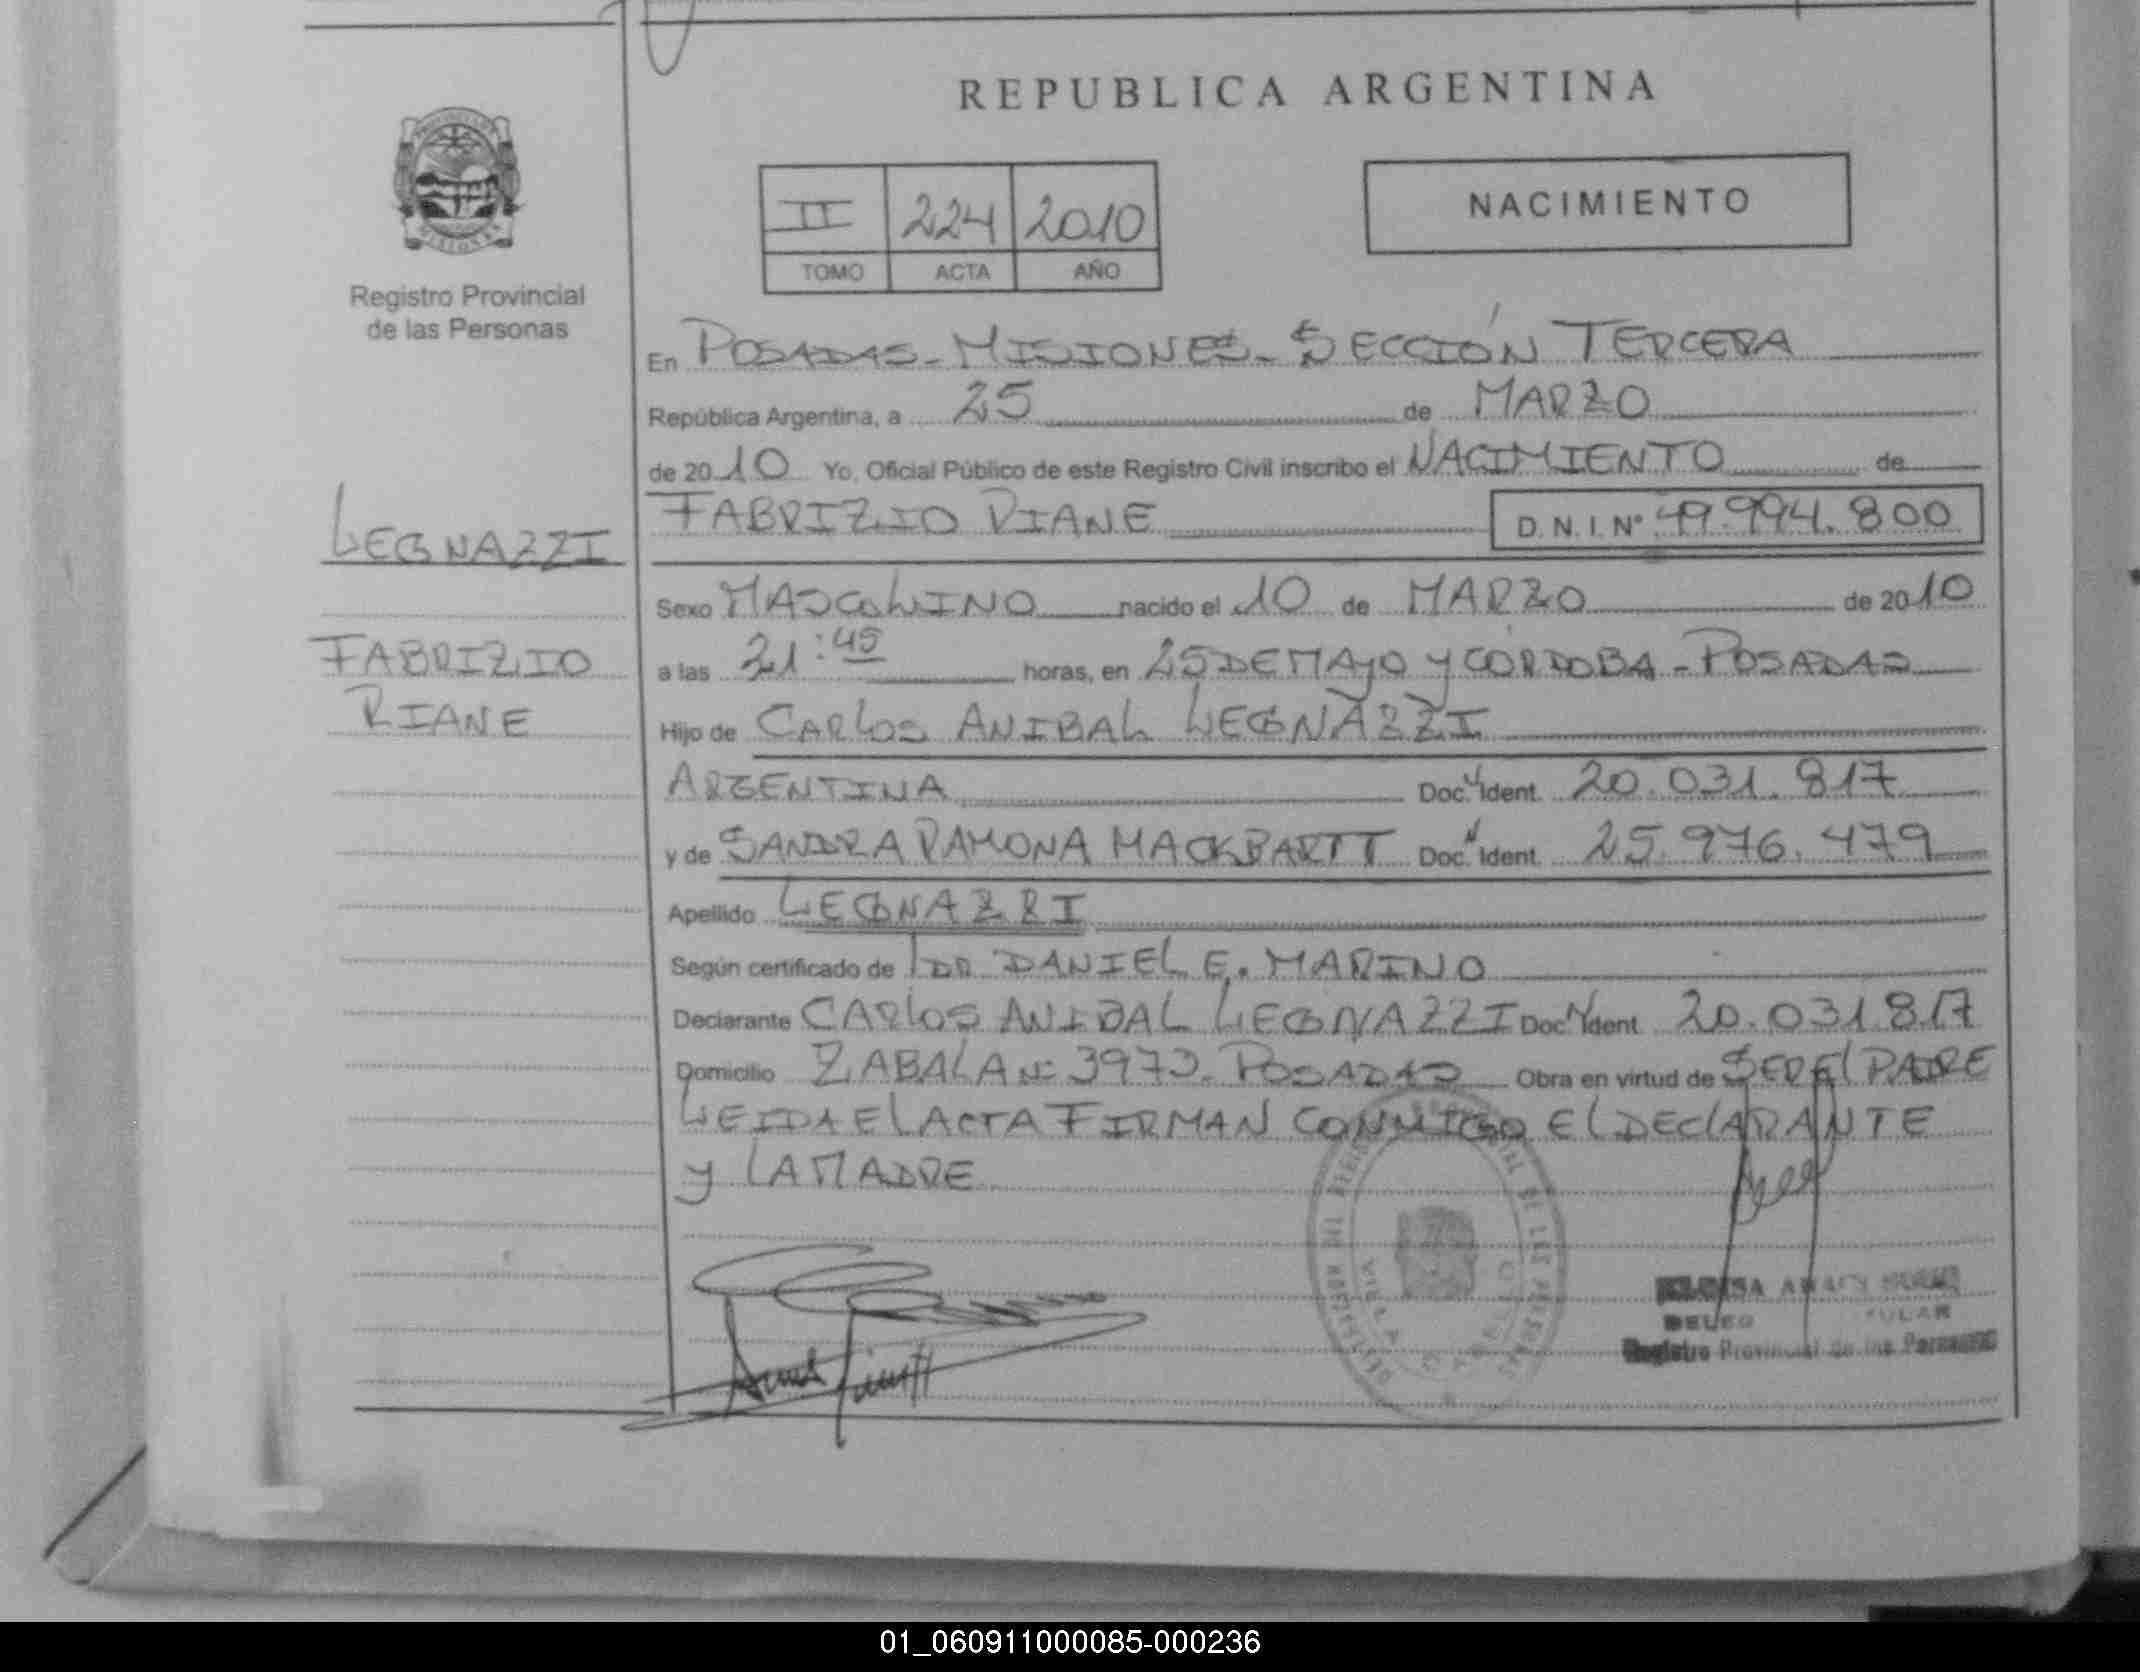 REPUBLICA ARGENTINA
PROVINCIA DE MISIONES
Registro Provincial
de las Personas
II 224 2010
TOMO ACTA AÑO
NACIMIENTO
En POSADAS - MISIONES - SECCIÓN TERCERA
República Argentina, a 25 de MARZO
de 2010 Yo, Oficial Público de este Registro Civil inscribo el NACIMIENTO de
FABRIZIO RIANE D.N.I.Nº 49.994.800
LEGNAZZI
FABRIZIO
RIANE
Sexo MASCULINO nacido el 10 de MARZO de 2010
a las 21:45 horas, en 25 DE MAYO y CÓRDOBA - POSADAS
Hijo de CARLOS ANIBAL LEGNAZZI
ARGENTINA Doc. Ident. 20.031.817
y de SANDRA RAMONA MACKBARTT Doc. Ident. 25.976.479
Apellido LEGNAZZI
Según certificado de DR. DANIEL E. MARINO
Declarante CARLOS ANIBAL LEGNAZZI Doc. Ident. 20.031.817
Domicilio ZABALA Nº 3973 - POSADAS Obra en virtud de SER EL PADRE
LEIDA EL ACTA FIRMAN CONMIGO EL DECLARANTE
y LA MADRE
Registro Provincial de las Personas
01_060911000085-000236